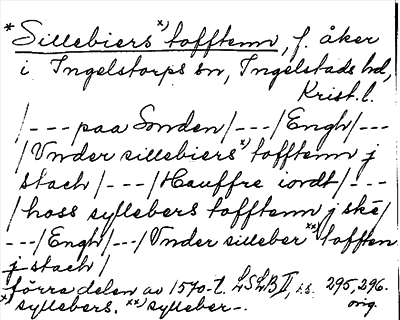 * Sillebiers x) tofftenn, f. åker
i Ingelstorps sn, Ingelstads hd,
Krist. l.
/---paa Sonden/---/Engh/---
/Vnder sillebiers x) tofftenn j
stach/---/Hauffre iordt/---
/hoss syllebers tofftenn j skë/
---/Engh/---/Vnder silleber xx) tofften
j stach/
förra delen av 1570-t. LSLB II, s. 295, 296.
orig.
x) syllebers. xx) sylleber-.